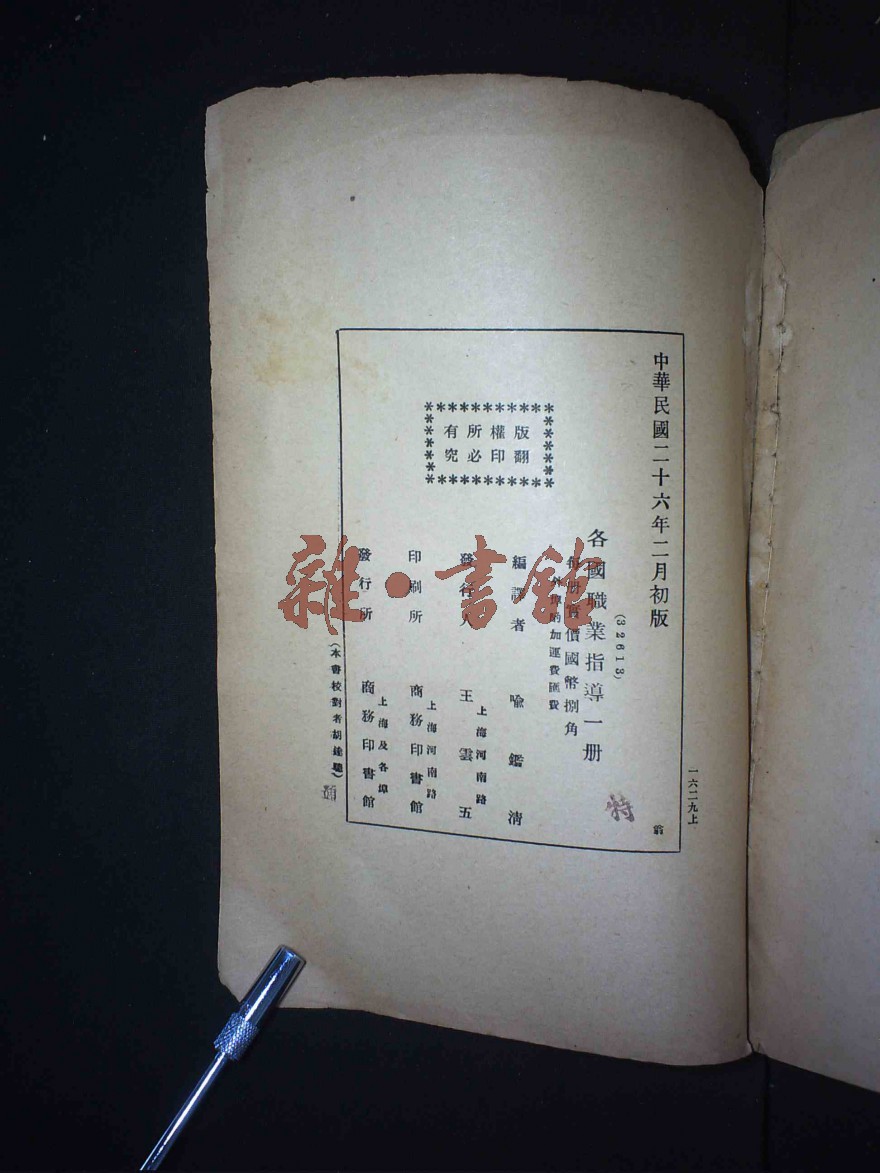 中華民國二十六年二月初版
(32613)
各國職業指導一册
每册實價國幣捌角
外埠酌加運費匯費
版權所有
翻印必究
編譯者 喩鑑清
上海河南路
發行人 王雲五
上海河南路
印刷所 商務印書館
上海及各埠
發行所 商務印書館
(本書校對者胡達聰)
一六二九上
特
翁
雜·書館